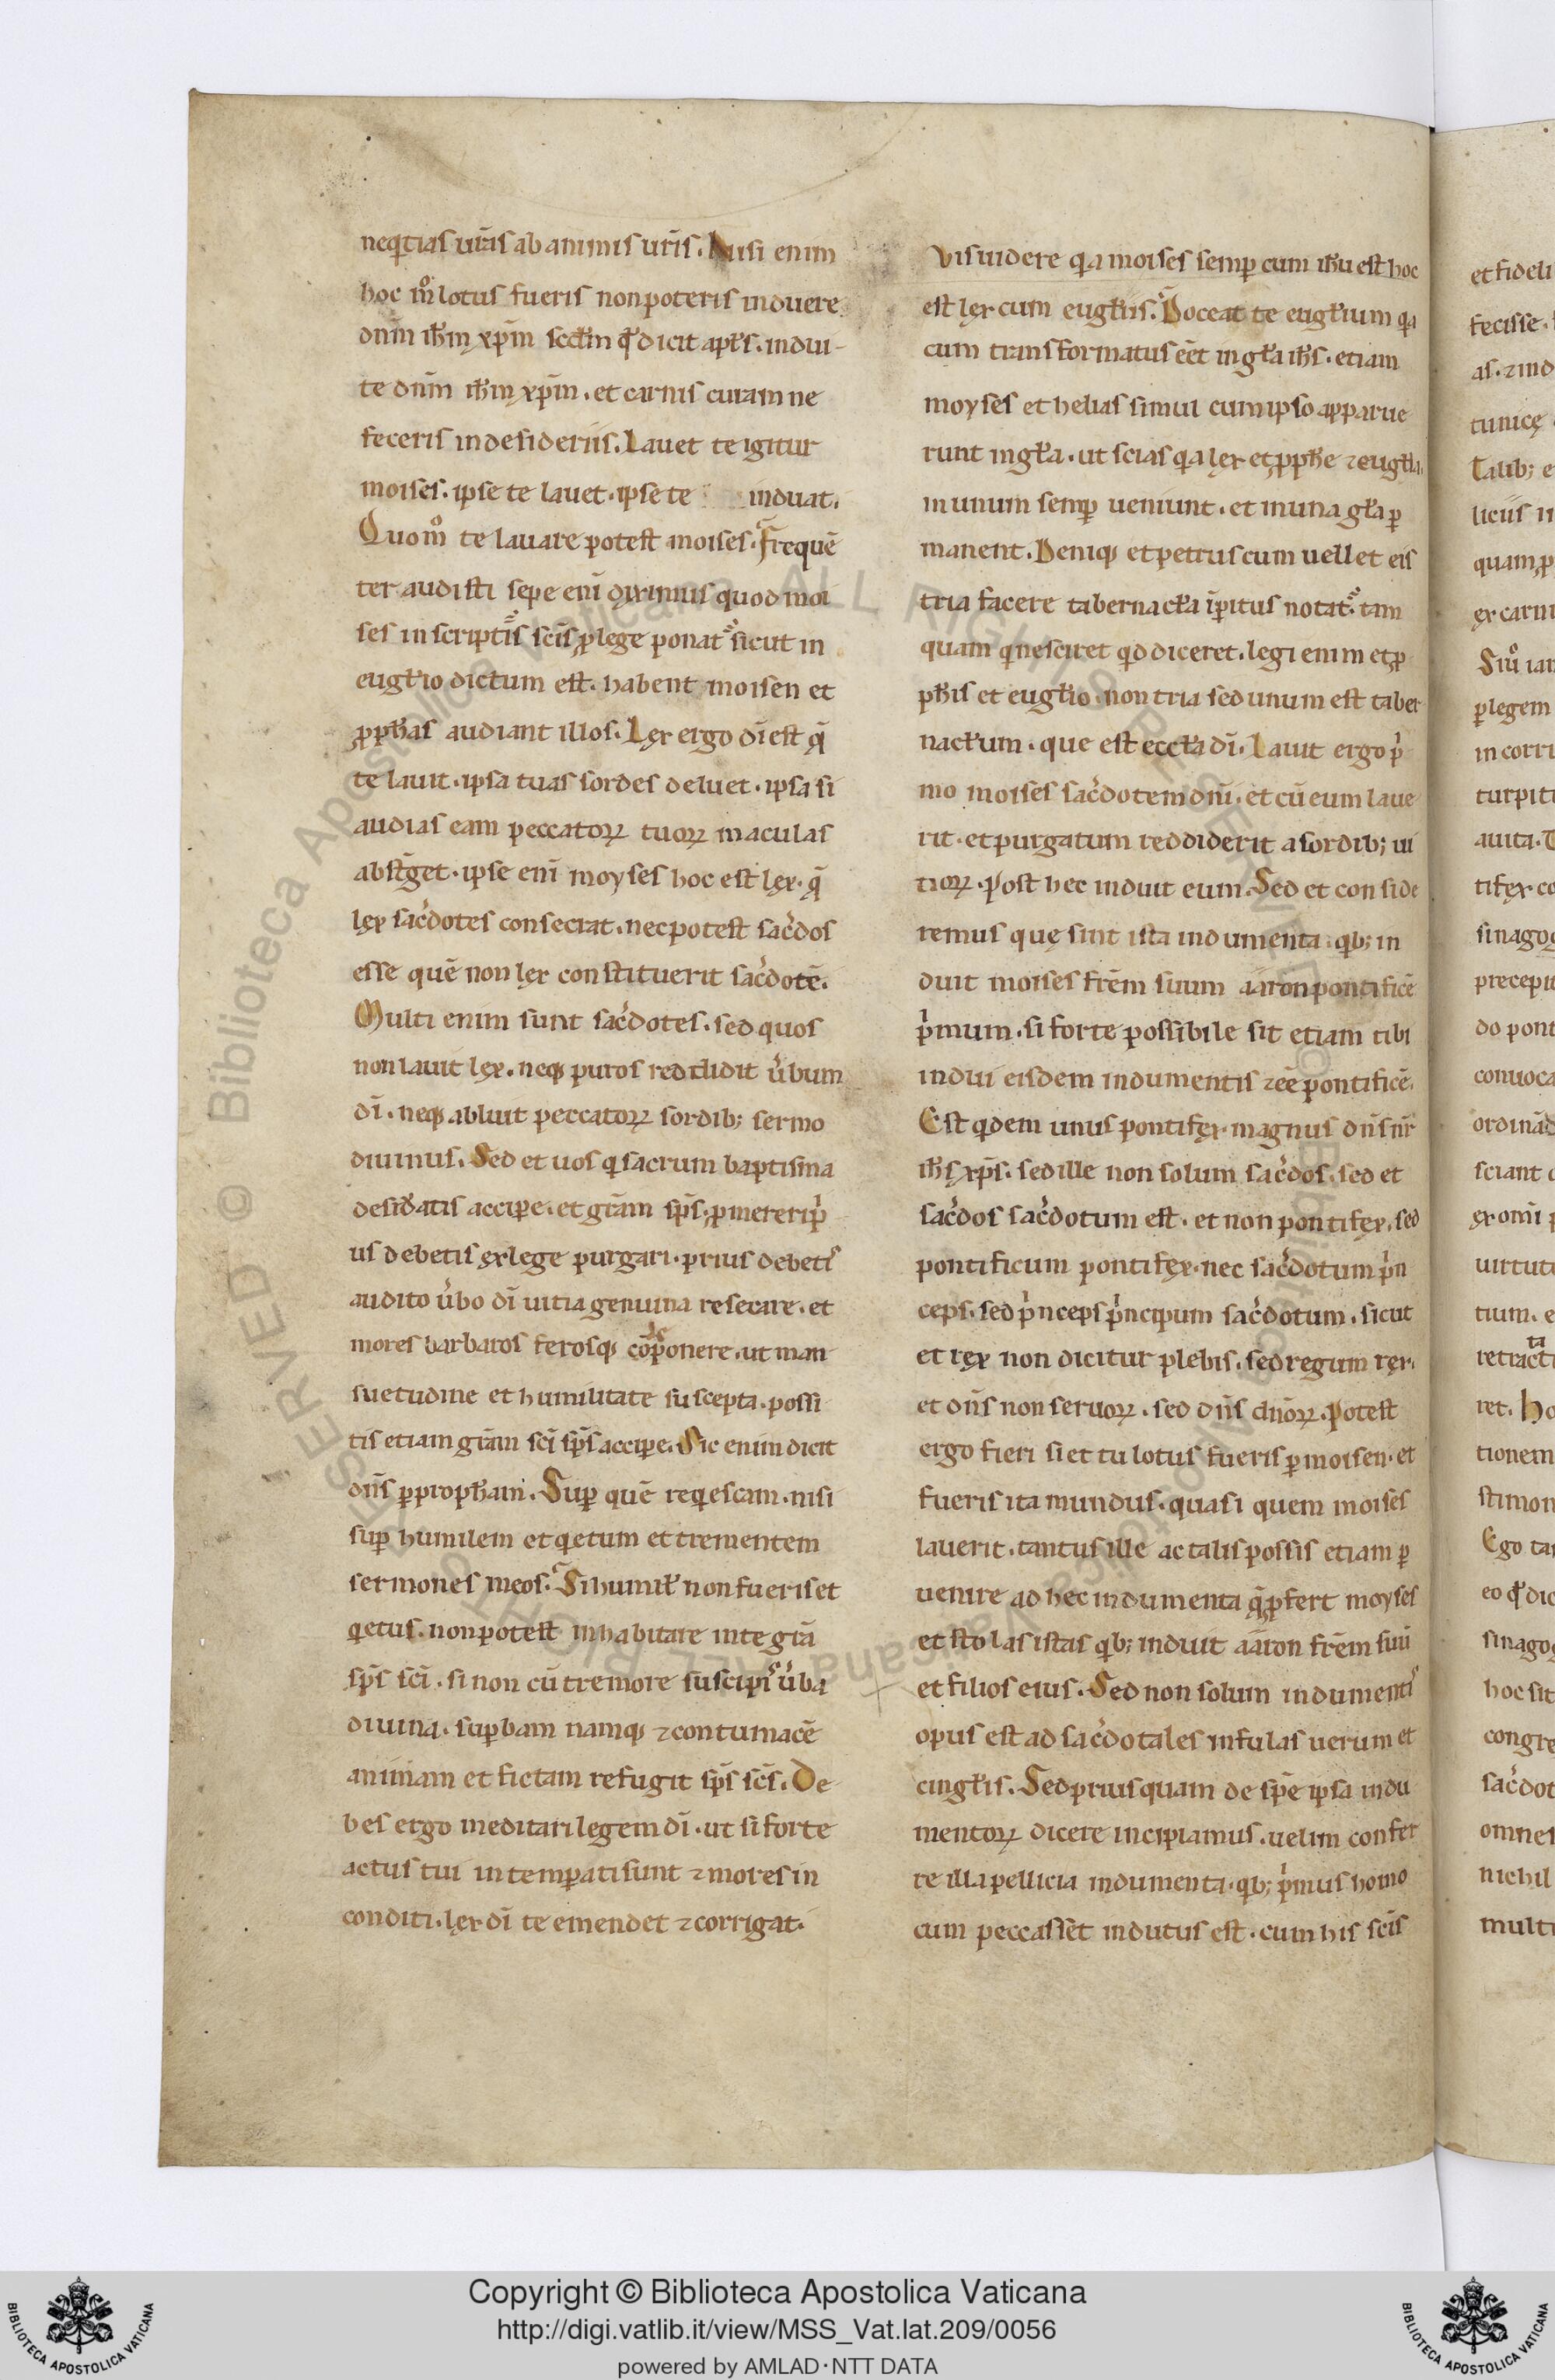 neq̇tias ur̄as ab animis ur̄is. Nisi enim
hoc m̊ lotus fueris non poteris induere
dnm̄ ih̄m xp̄m scd̄m qd̄ dicit apl̄s. indui-
te dnm̄ ih̄m xp̄m. et carnis curam ne
feceris in desideriis. Lauet te igitur
moises. ipse te lauet. ipse te induat.
Quom̊ te lauare potest moises. Frequē
ter audisti sepe enī diximus quod moi
ses in scripturis sc̄is ꝓ lege ponat᷑ sicut in
eugl̄io dictum est. habent moisen et
ꝓph̄as audiant illos. Lex ergo dī est q̄
te lauit. ipsa tuas sordes deluet. ipsa si
audias eam peccatoꝝ tuoꝝ maculas
abst̄get. ipse enī moyses hoc est lex. q̄
lex sac̄dotes consecrat. nec potest sac̄dos
esse quē non lex constituerit sac̄dotē.
Multi enim sunt sac̄dotes. sed quos
non lauit lex. neq; puros reddidit u̾bum
dī. neq; abluit peccatoꝝ sordib; sermo
diuinus. Sed et uos q̇ sacrum baptisma
desid̾atis accipe. et gr̄am sp̄s ꝓmereri pͥ
us debetis ex lege purgari. prius debetis
audito u̾bo dī uitia genuina resecare. et
mores barbaros ferosq; cōponere. ut man
suetudine et humilitate suscepta. possi
tis etiam gr̄am sc̄i sp̄s accipe. Sic enim dicit
dn̄s ꝑ prophetam. Suꝑ quē req̇escam. nisi
suꝑ humilem et q̇etum et trementem
sermones meos. Si humil̄ non fueris et
q̇etus. non potest inhabitare in te gr̄a
sp̄s sc̄i. si non cū tremore suscipis u̾ba
diuina. suꝑbam namq; ⁊ contumacē
animam et fictam refugit sp̄s sc̄s. De
bes ergo meditari legem dī. ut si forte
actus tui intemꝑati sunt ⁊ mores in
conditi. lex dī te emendet ⁊ corrigat.
Vis uidere q̇a moises semꝑ cum ih̄u est hoc
est lex cum eugl̄iis. Doceat te eugl̄ium q̇a
cum transformatus eēt in gl̄a ih̄s. etiam
moyses et helias simul cum ipso apparue
runt in gl̄a. ut scias q̇a lex et ꝓph̄e ⁊ eugl̄ia
in unum semꝑ ueniunt. et in una gl̄a ꝑ
manent. Deniq; et petrus cum uellet eis
tria facere tabernacl̄a īꝑitus notat᷑ tam
quam q̇ nesciret qd̄ diceret. legi enim et ꝓ
ph̄is et eugl̄io. non tria sed unum est taber
nacl̄um. que est eccl̄a dī. Lauit ergo pͥ
mo moises sac̄dotem dnī. et cū eum laue
rit. et purgatum reddiderit a sordib; ui
tioꝝ. Post hec induit eum. Sed et conside
remus quę sint ista indumenta. q̇b; in
duit moises fr̄em suum aaron pontificē
pͥmum. si forte possibile sit etiam tibi
indui eisdem indumentis ⁊ eē pontificē.
Est q̇dem unus pontifex magnus dn̄s nr̄
ih̄s xp̄s. sed ille non solum sac̄dos. sed et
sac̄dos sac̄dotum est. et non pontifex. sed
pontificum pontifex. nec sac̄dotum pͥn
ceps. sed pͥnceps pͥncipum sac̄dotum. sicut
et rex non dicitur plebis. sed regum rex.
et dn̄s non seruoꝝ. sed dn̄s dn̄oꝝ. Potest
ergo fieri si et tu lotus fueris ꝑ moisen. et
fueris ita mundus. quasi quem moises
lauerit. tantus ille ac talis possis etiam ꝑ
uenire ad hec indumenta q̄ ꝓfert moyses
et stolas istas q̇b; induit aaron fr̄em suū
et filios eius. Sed non solum indumentis
opus est ad sac̄dotales infulas uerum et
cingl̄is. Sed priusquam de sp̄e ipsa indu
mentoꝝ dicere incipiamus. uelim confer
re illa pellicia indumenta. q̇b; pͥmus homo
cum peccasset indutus est. cum his sc̄is
et fideli
fecisse.
as. ⁊ ind
tunicę
Talib; e
liciis
quam ꝓ
ex carni
ꝑ legem
in corri
turpit
auita.
tifex co
sinagog
precepit
do pont
conuoca
ordinād
sciant
ex omī
uirtut
tium. e
ta
retracti
ret. Ho
tionem
stimon
Ego tam
eo qd̄ dic
sinagog
hoc sit
congre
sac̄dot
omnes
nichil
multi
© Biblioteca Apostolica Vaticana ALL RIGHTS RESERVED
Copyright © Biblioteca Apostolica Vaticana
http://digi.vatlib.it/view/MSS_Vat.lat.209/0056
powered by AMLAD·NTT DATA
BIBLIOTECA APOSTOLICA VATICANA
BIBLIOTECA APOSTOLICA VATICANA